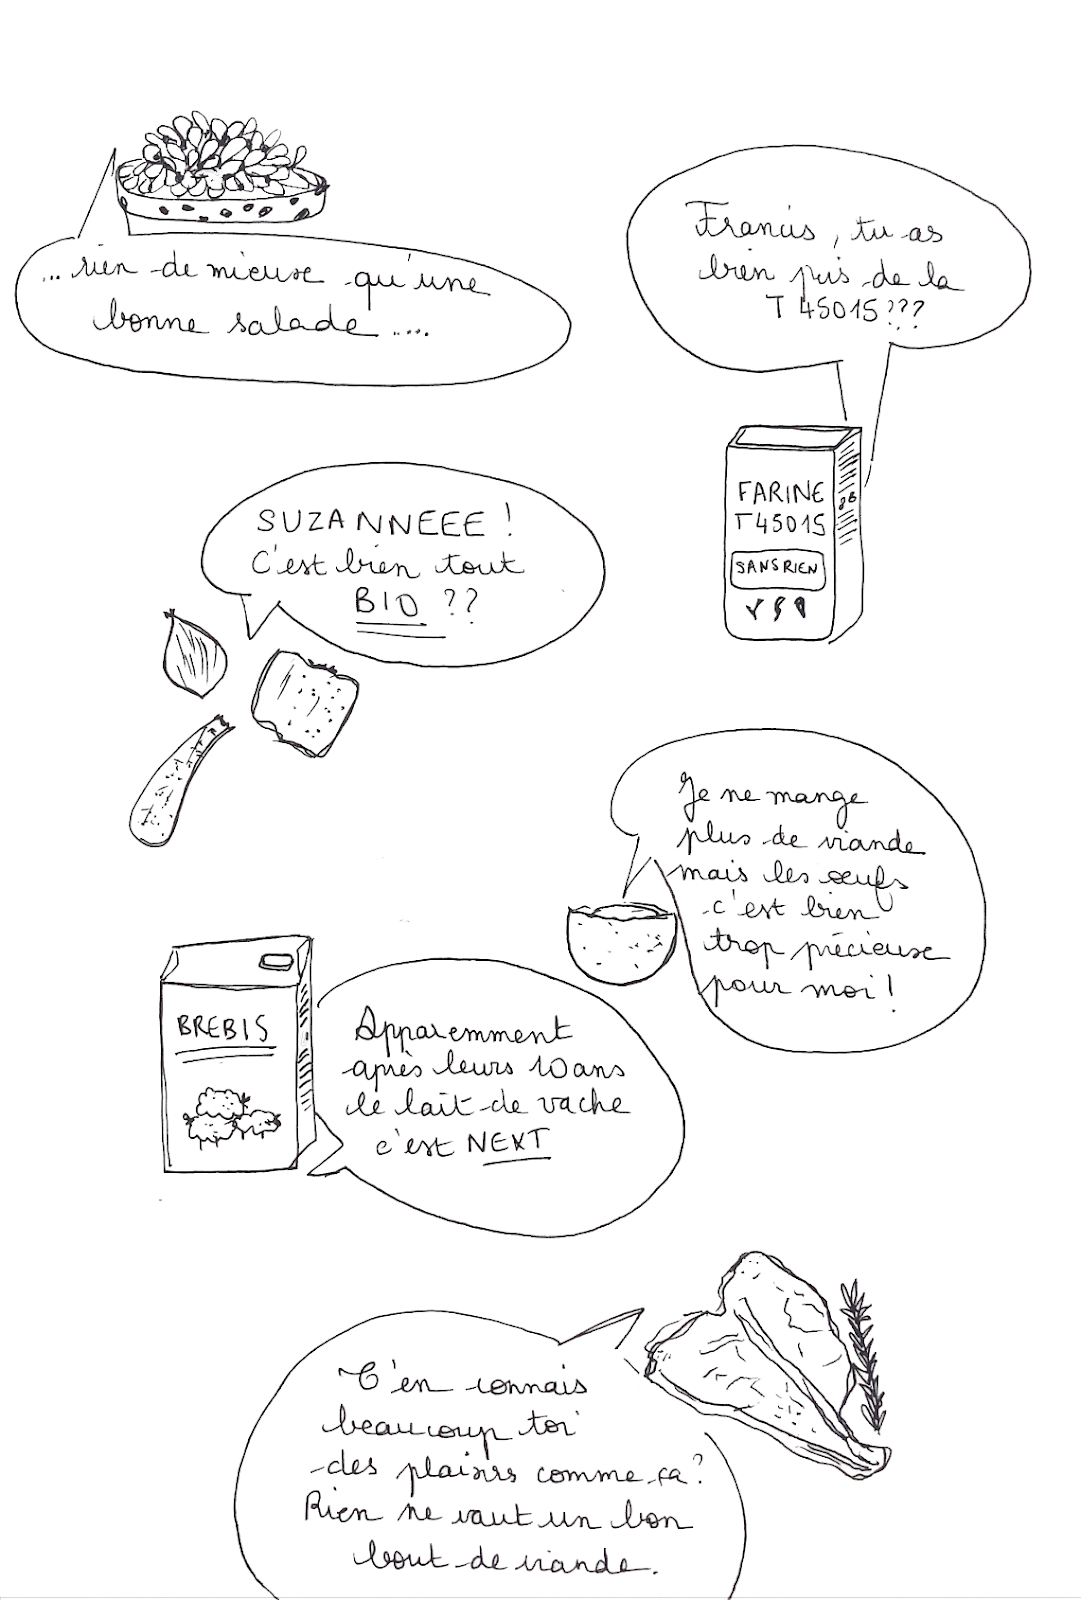 ... rien de mieux qu'une
bonne salade ....
Francis, tu as
bien pris de la
T 45015???
FARINE
T45015
SANS RIEN
SUZANNEEE !
C'est bien tout
BIO ??
Je ne mange
plus de viande
mais les œufs
c'est bien
trop précieux
pour moi !
BREBIS
Apparemment
après leurs 10 ans
le lait de vache
c'est NEXT
T'en connais
beaucoup toi
des plaisirs comme ça ?
Rien ne vaut un bon
bout de viande.